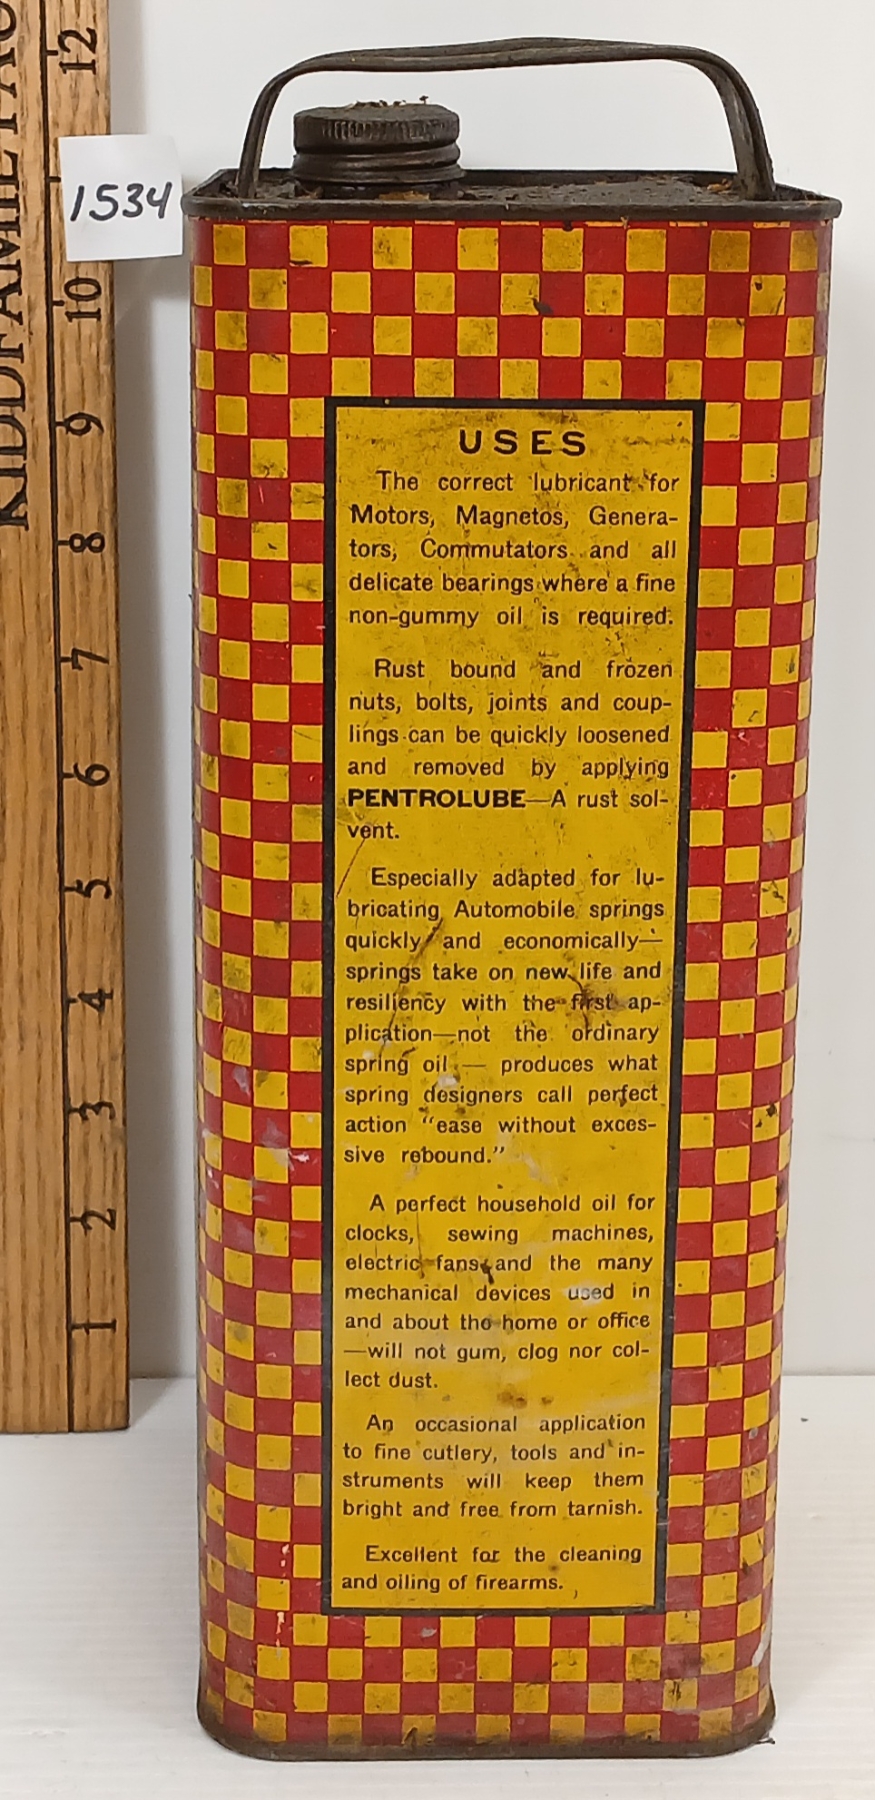 12
1534
10
9
8
7
6
5
4
3
2
1
KIDDFAMILYAU
USES
The correct lubricant for
Motors, Magnetos, Genera-
tors, Commutators and all
delicate bearings where a fine
non-gummy oil is required.
Rust bound and frozen
nuts, bolts, joints and coup-
lings can be quickly loosened
and removed by applying
PENTROLUBE—A rust sol-
vent.
Especially adapted for lu-
bricating Automobile springs
quickly and economically—
springs take on new life and
resiliency with the first ap-
plication—not the ordinary
spring oil — produces what
spring designers call perfect
action "ease without exces-
sive rebound."
A perfect household oil for
clocks, sewing machines,
electric fans and the many
mechanical devices used in
and about the home or office
—will not gum, clog nor col-
lect dust.
An occasional application
to fine cutlery, tools and in-
struments will keep them
bright and free from tarnish.
Excellent for the cleaning
and oiling of firearms.